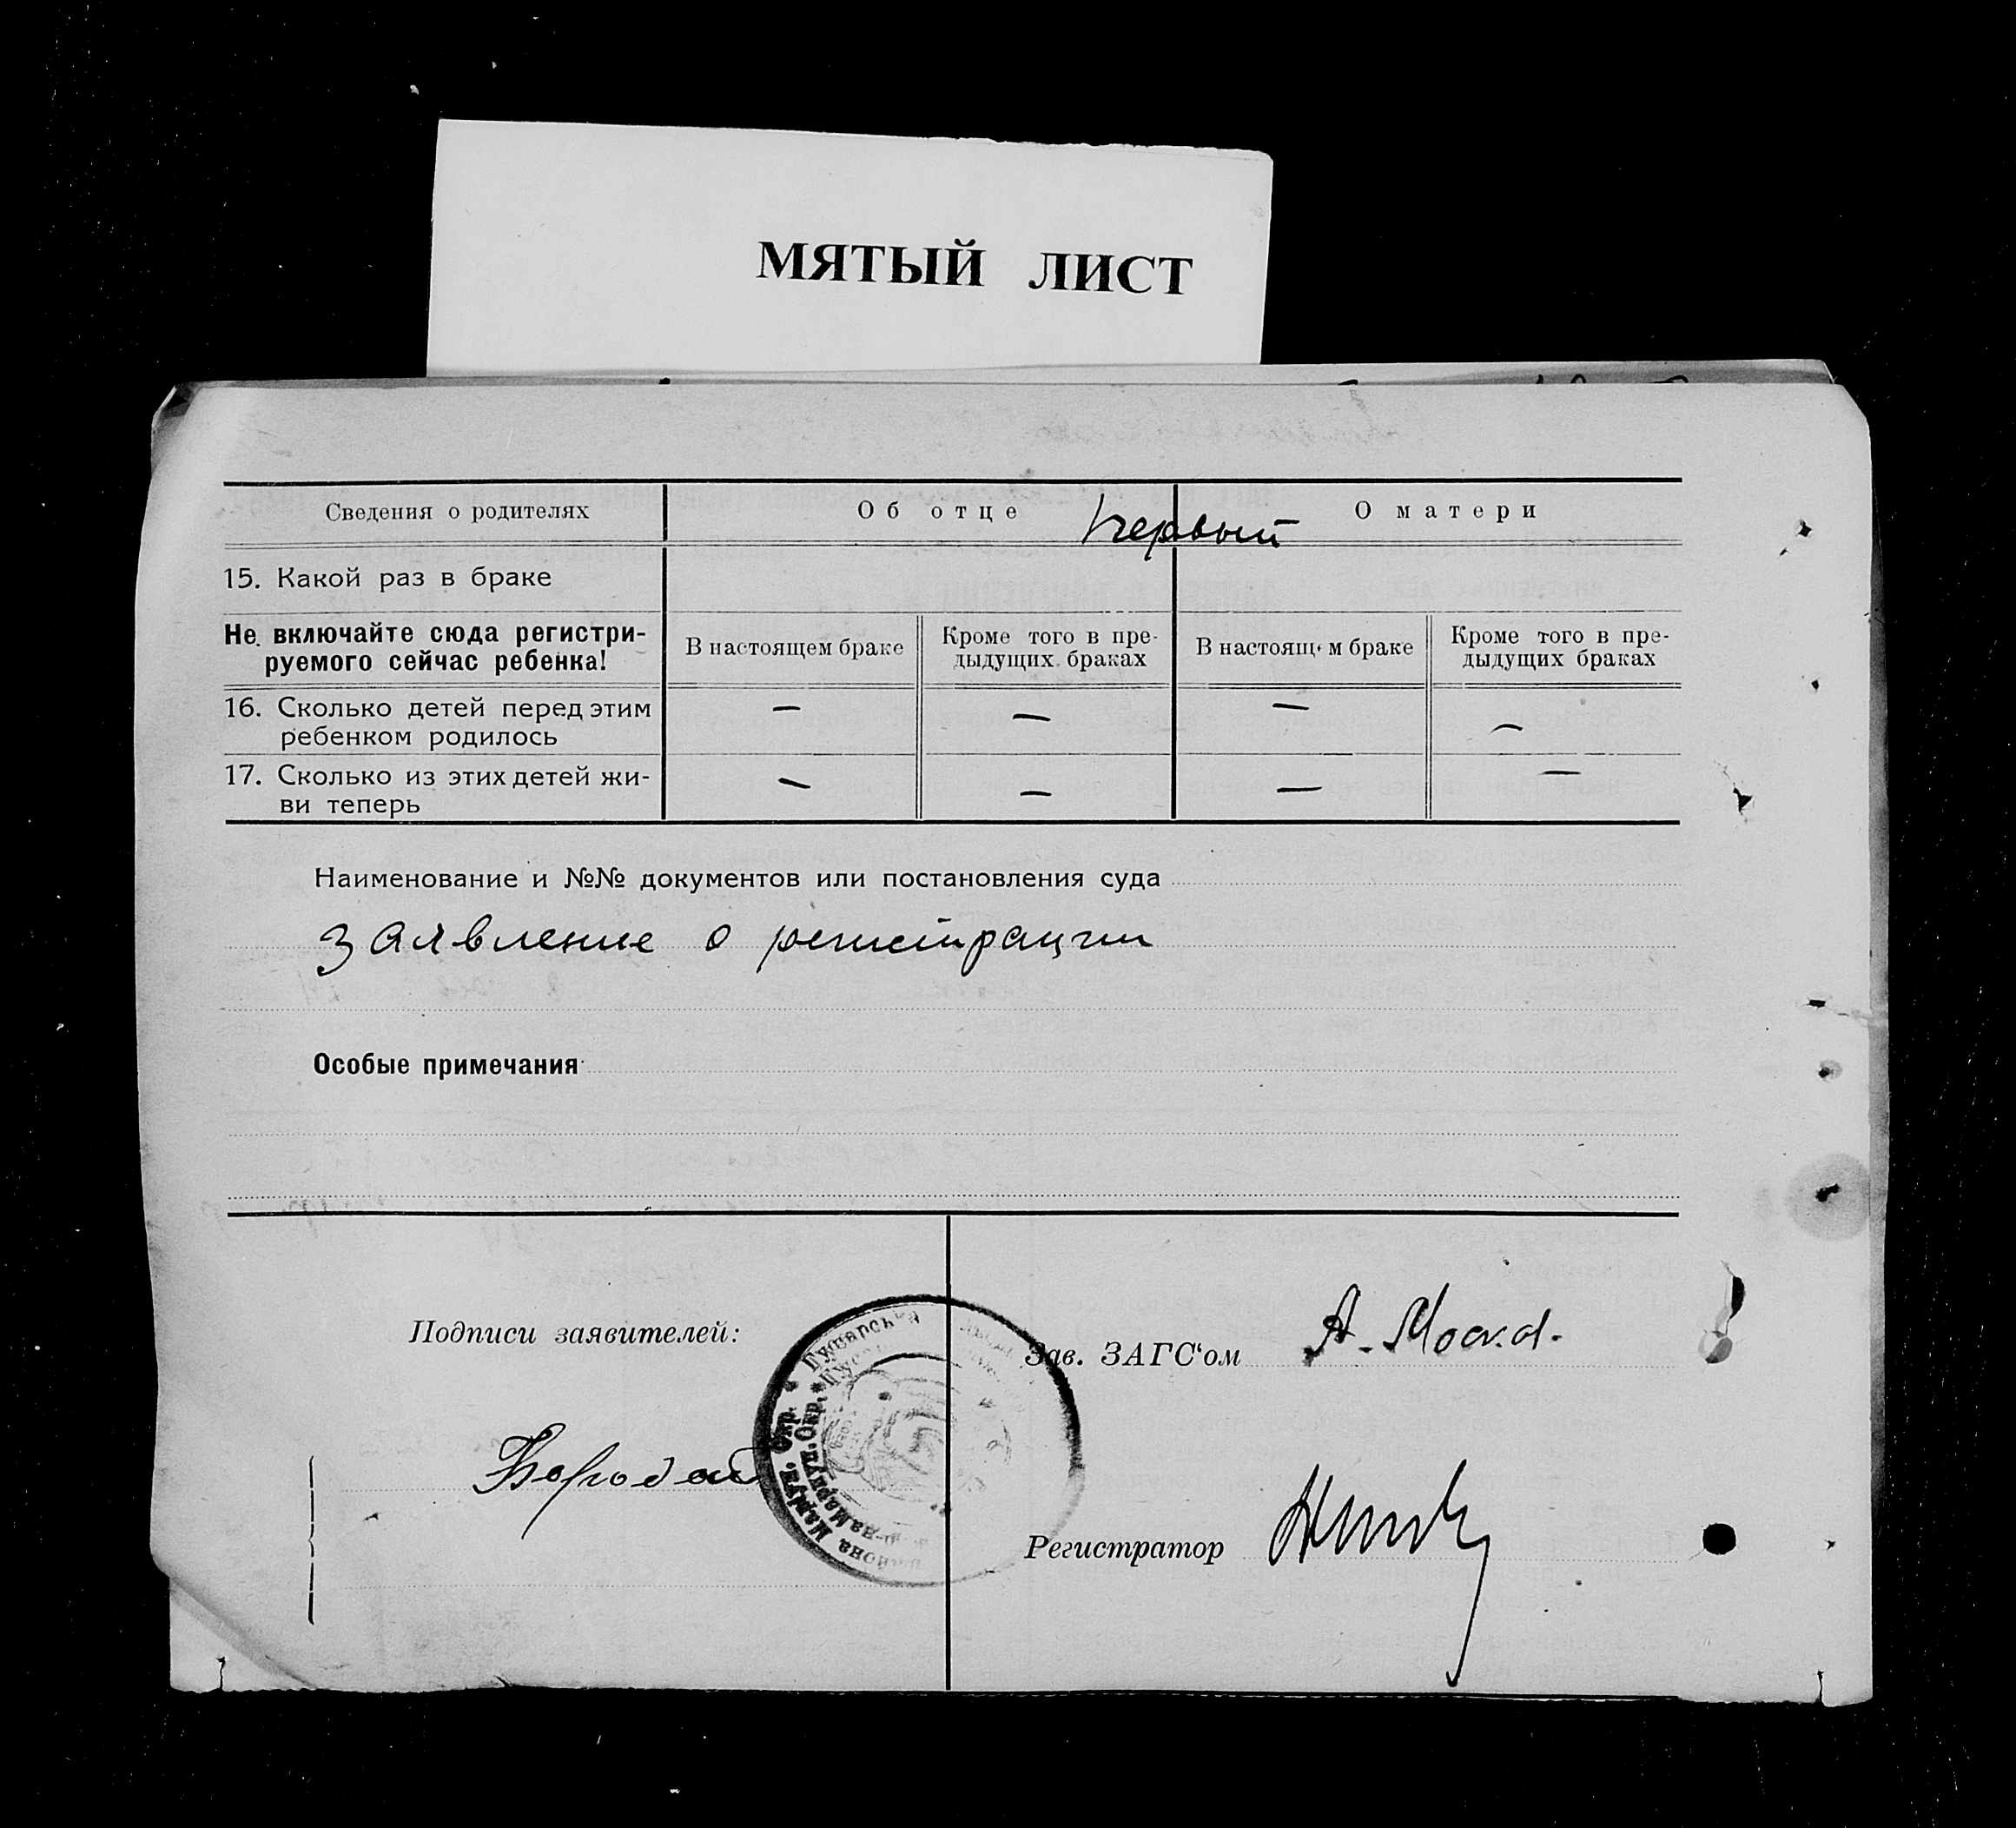 МЯТЫЙ ЛИСТ
Сведения о родителях
Об отце
О матери
первый
15. Какой раз в браке
Не включайте сюда регистри-
руемого сейчас ребенка!
В настоящем браке
Кроме того в пре-
дыдущих браках
В настоящем браке
Кроме того в пре-
дыдущих браках
16. Сколько детей перед этим
ребенком родилось
— — — —
17. Сколько из этих детей жи-
ви теперь
— — — —
Наименование и №№ документов или постановления суда
заявление о регистрации
Особые примечания
Подписи заявителей:
Зав. ЗАГС‘ом
Бородай
Регистратор
Гусарська
района Маріуп. Окр.
р-на Маріуп. Окр.